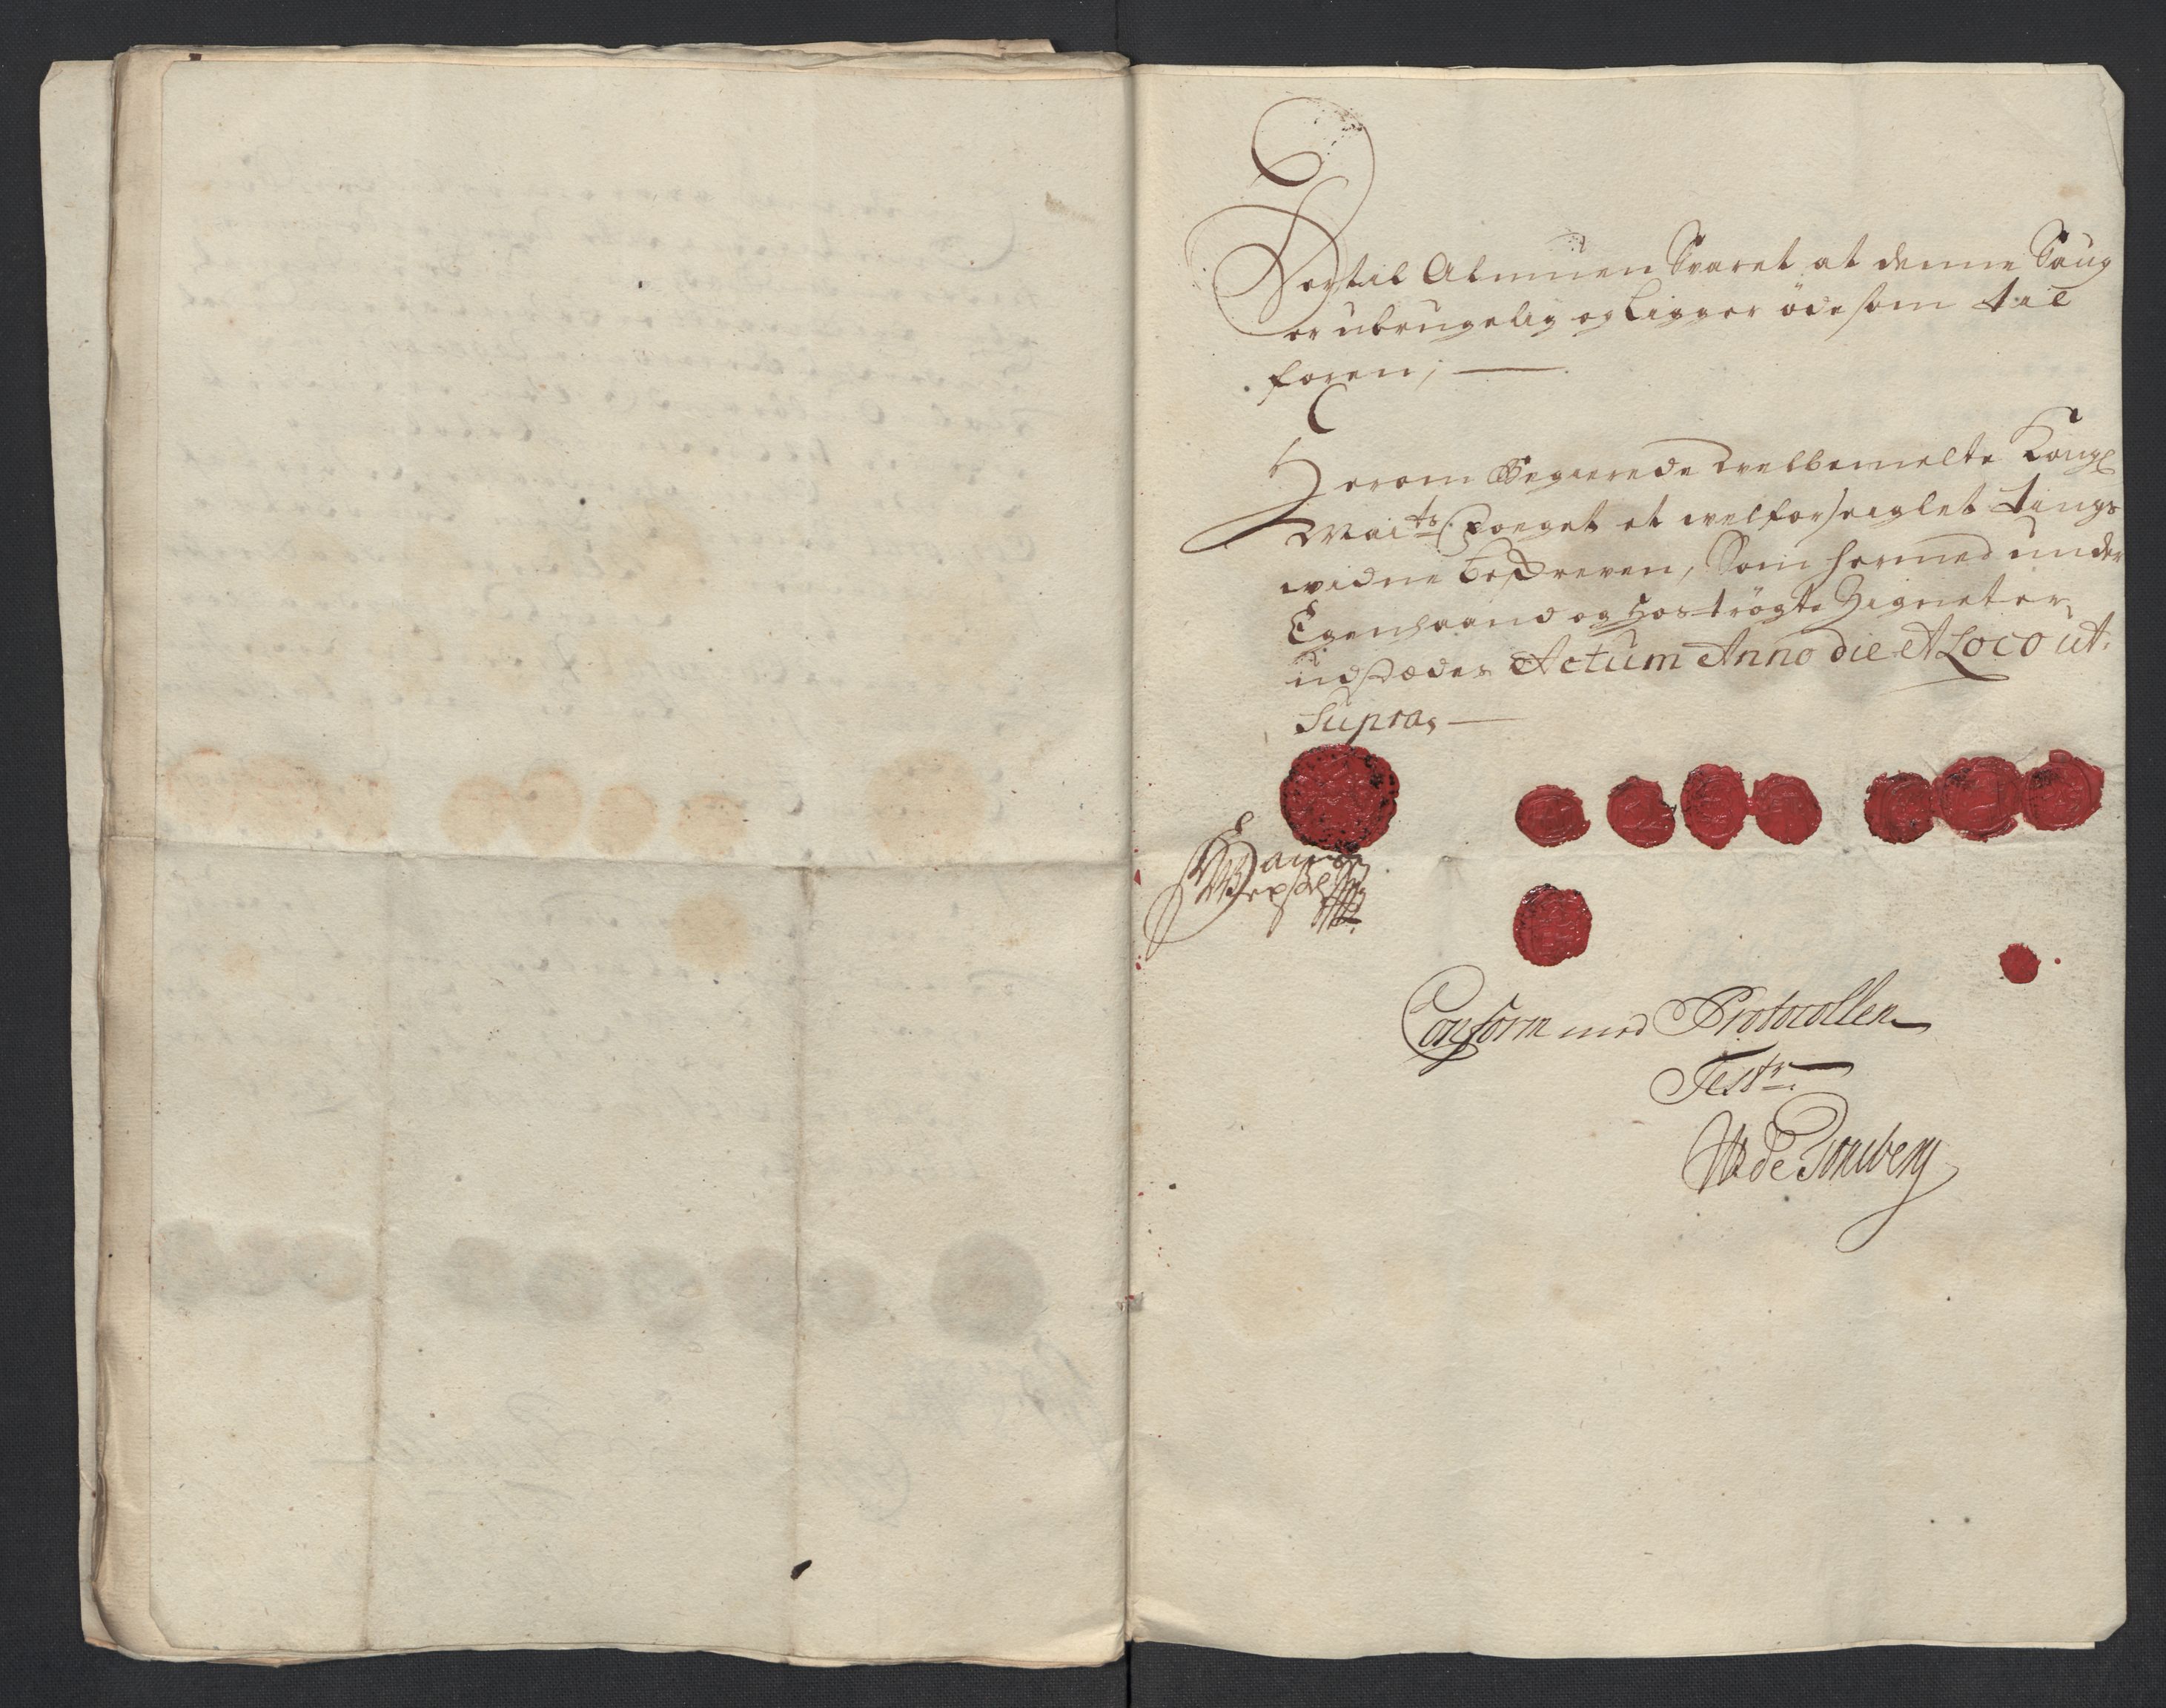 Dertil Almuen Svaret at denne Saug
er ubrugelig og Ligger øde som til
foren;
Herom Begierede velbemelte Kongl
Mai.ts Foeget et velforseiglet tings
widne beskreven, Som hermed under
Egenhaand og hoströgte Zigneter
udstædes Actum Anno die & Loco ut.
Supra,
Conform med Protocollen
Test.